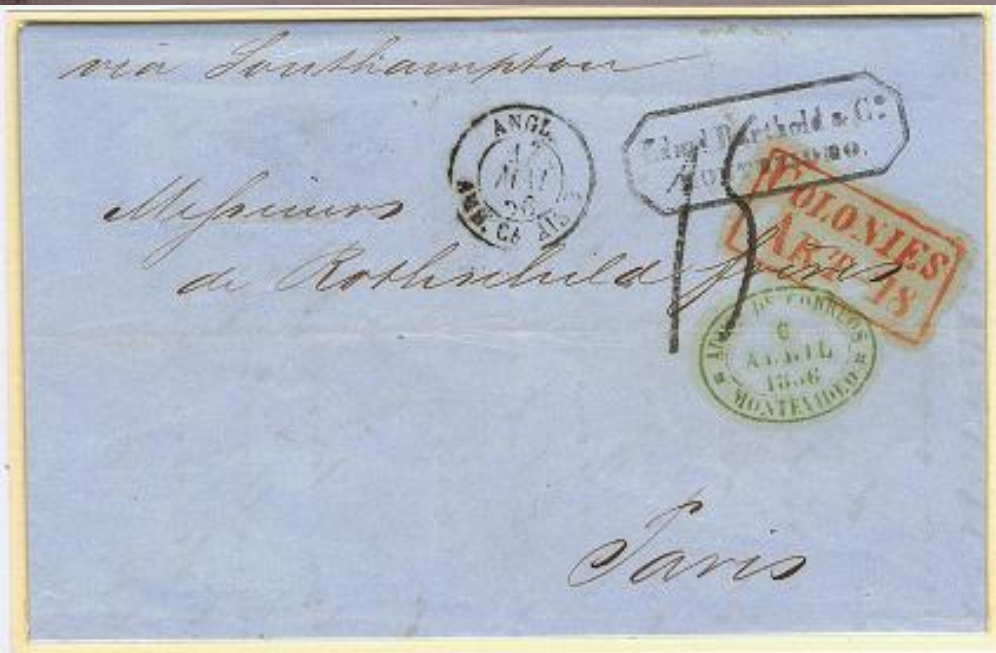 via Southampton
ANGL.
MAI
AMB. CALAIS
& Cº
MONTEVIDEO.
15
COLONIES
ART. 18
Messieurs
de Rothschild frères
DE CORREOS
6
ABRIL
1856
MONTEVIDEO
Paris